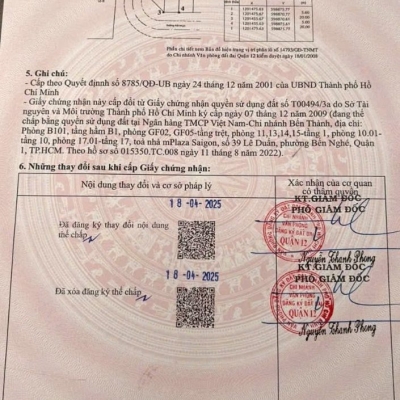 Phần chi tiết xem Bản đồ hiện trạng vị trí phần lô 14793/GĐ-TNMT
do Chi nhánh Văn phòng đất đai Quận 12 kiểm duyệt ngày 18/01/2008
5. Ghi chú:
- Cấp theo Quyết định số 8785/QĐ-UB ngày 24 tháng 12 năm 2001 của UBND Thành phố Hồ
Chí Minh
- Giấy chứng nhận này cấp đổi từ Giấy chứng nhận quyền sử dụng đất số T00494/3a do Sở Tài
nguyên và Môi trường Thành phố Hồ Chí Minh ký cấp ngày 07 tháng 12 năm 2009 (đang thế
chấp bằng quyền sử dụng đất tại Ngân hàng TMCP Việt Nam-Chi nhánh Bến Thành, địa chỉ:
Phòng B101, tầng hầm B1, phòng GF02, GF05-tầng trệt, phòng 11,13,14,15-tầng 1, phòng 10.01-
tầng 10, phòng 17.01-tầng 17, toà nhà mPlaza Saigon, số 39 Lê Duẩn, phường Bến Nghé, Quận
1, TP.HCM. Theo hồ sơ số 015350.TC.008 ngày 11 tháng 8 năm 2022).
6. Những thay đổi sau khi cấp Giấy chứng nhận:
Nội dung thay đổi và cơ sở pháp lý
Xác nhận của cơ quan
có thẩm quyền
18-04-2025
KT.GIÁM ĐỐC
PHÓ GIÁM ĐỐC
Đã đăng ký thay đổi nội dung
thế chấp
CHI NHÁNH
VĂN PHÒNG
ĐĂNG KÝ ĐẤT ĐAI
QUẬN 12
Nguyễn Thanh Phong
18-04-2025
KT.GIÁM ĐỐC
PHÓ GIÁM ĐỐC
Đã xóa đăng ký thế chấp
CHI NHÁNH
VĂN PHÒNG
ĐĂNG KÝ ĐẤT ĐAI
QUẬN 12
Nguyễn Thanh Phong